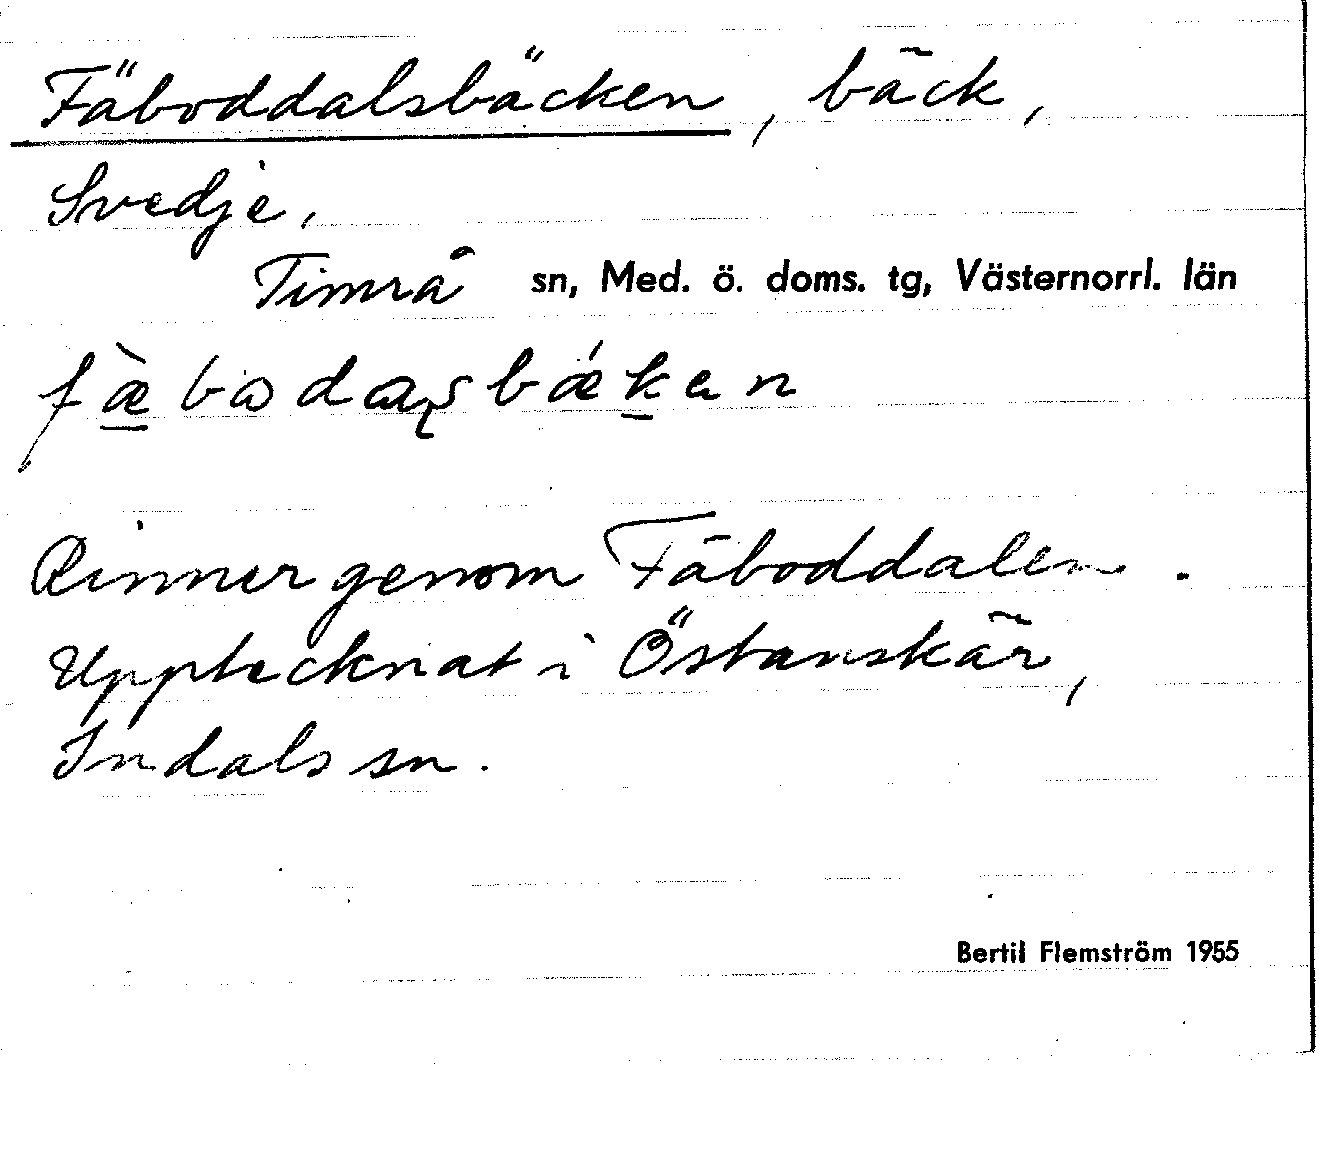 Fäboddalsbäcken, bäck,
Svedje,
Timrå sn, Med. ö. doms. tg, Västernorrl. län
Rinner genom Fäboddalen.
Upptecknat i Östanskär,
Indals sn.
Bertil Flemström 1955